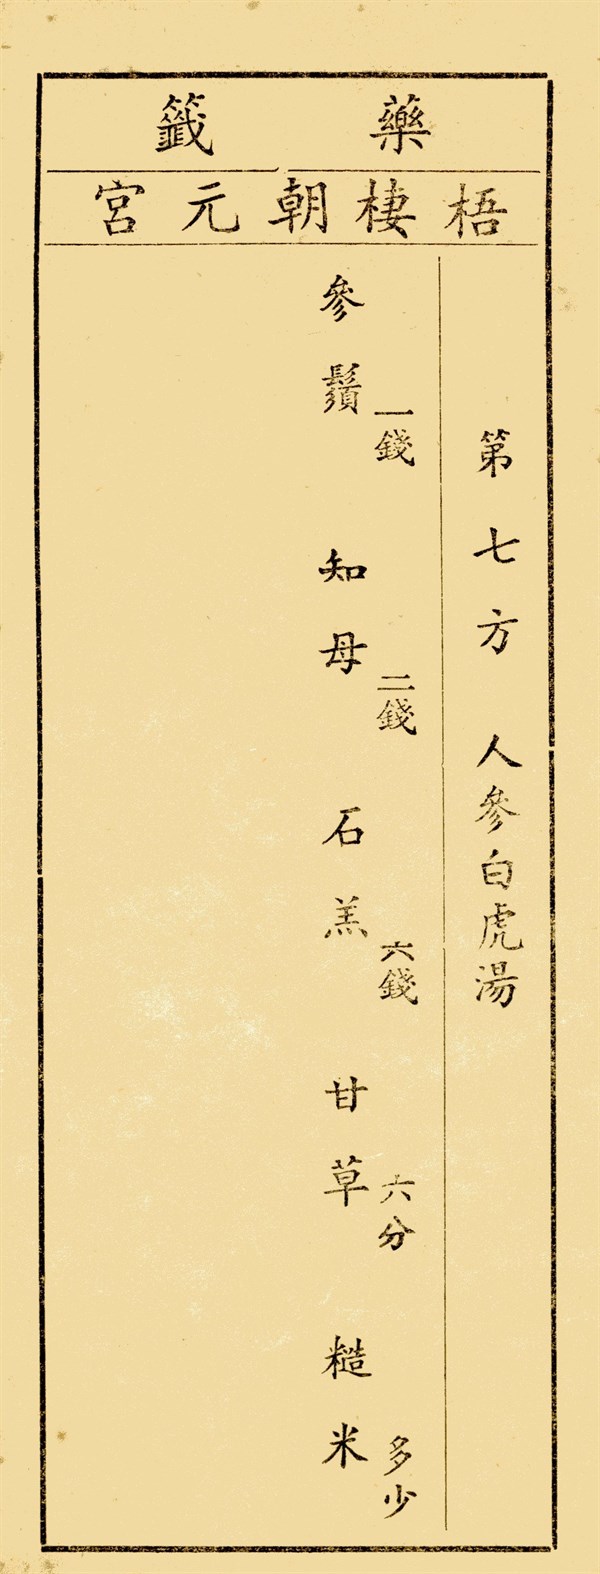 藥籤
梧棲朝元宮
第七方 人參白虎湯
參鬚 一錢 知母 二錢 石羔 六錢 甘草 六分 糙米 多少